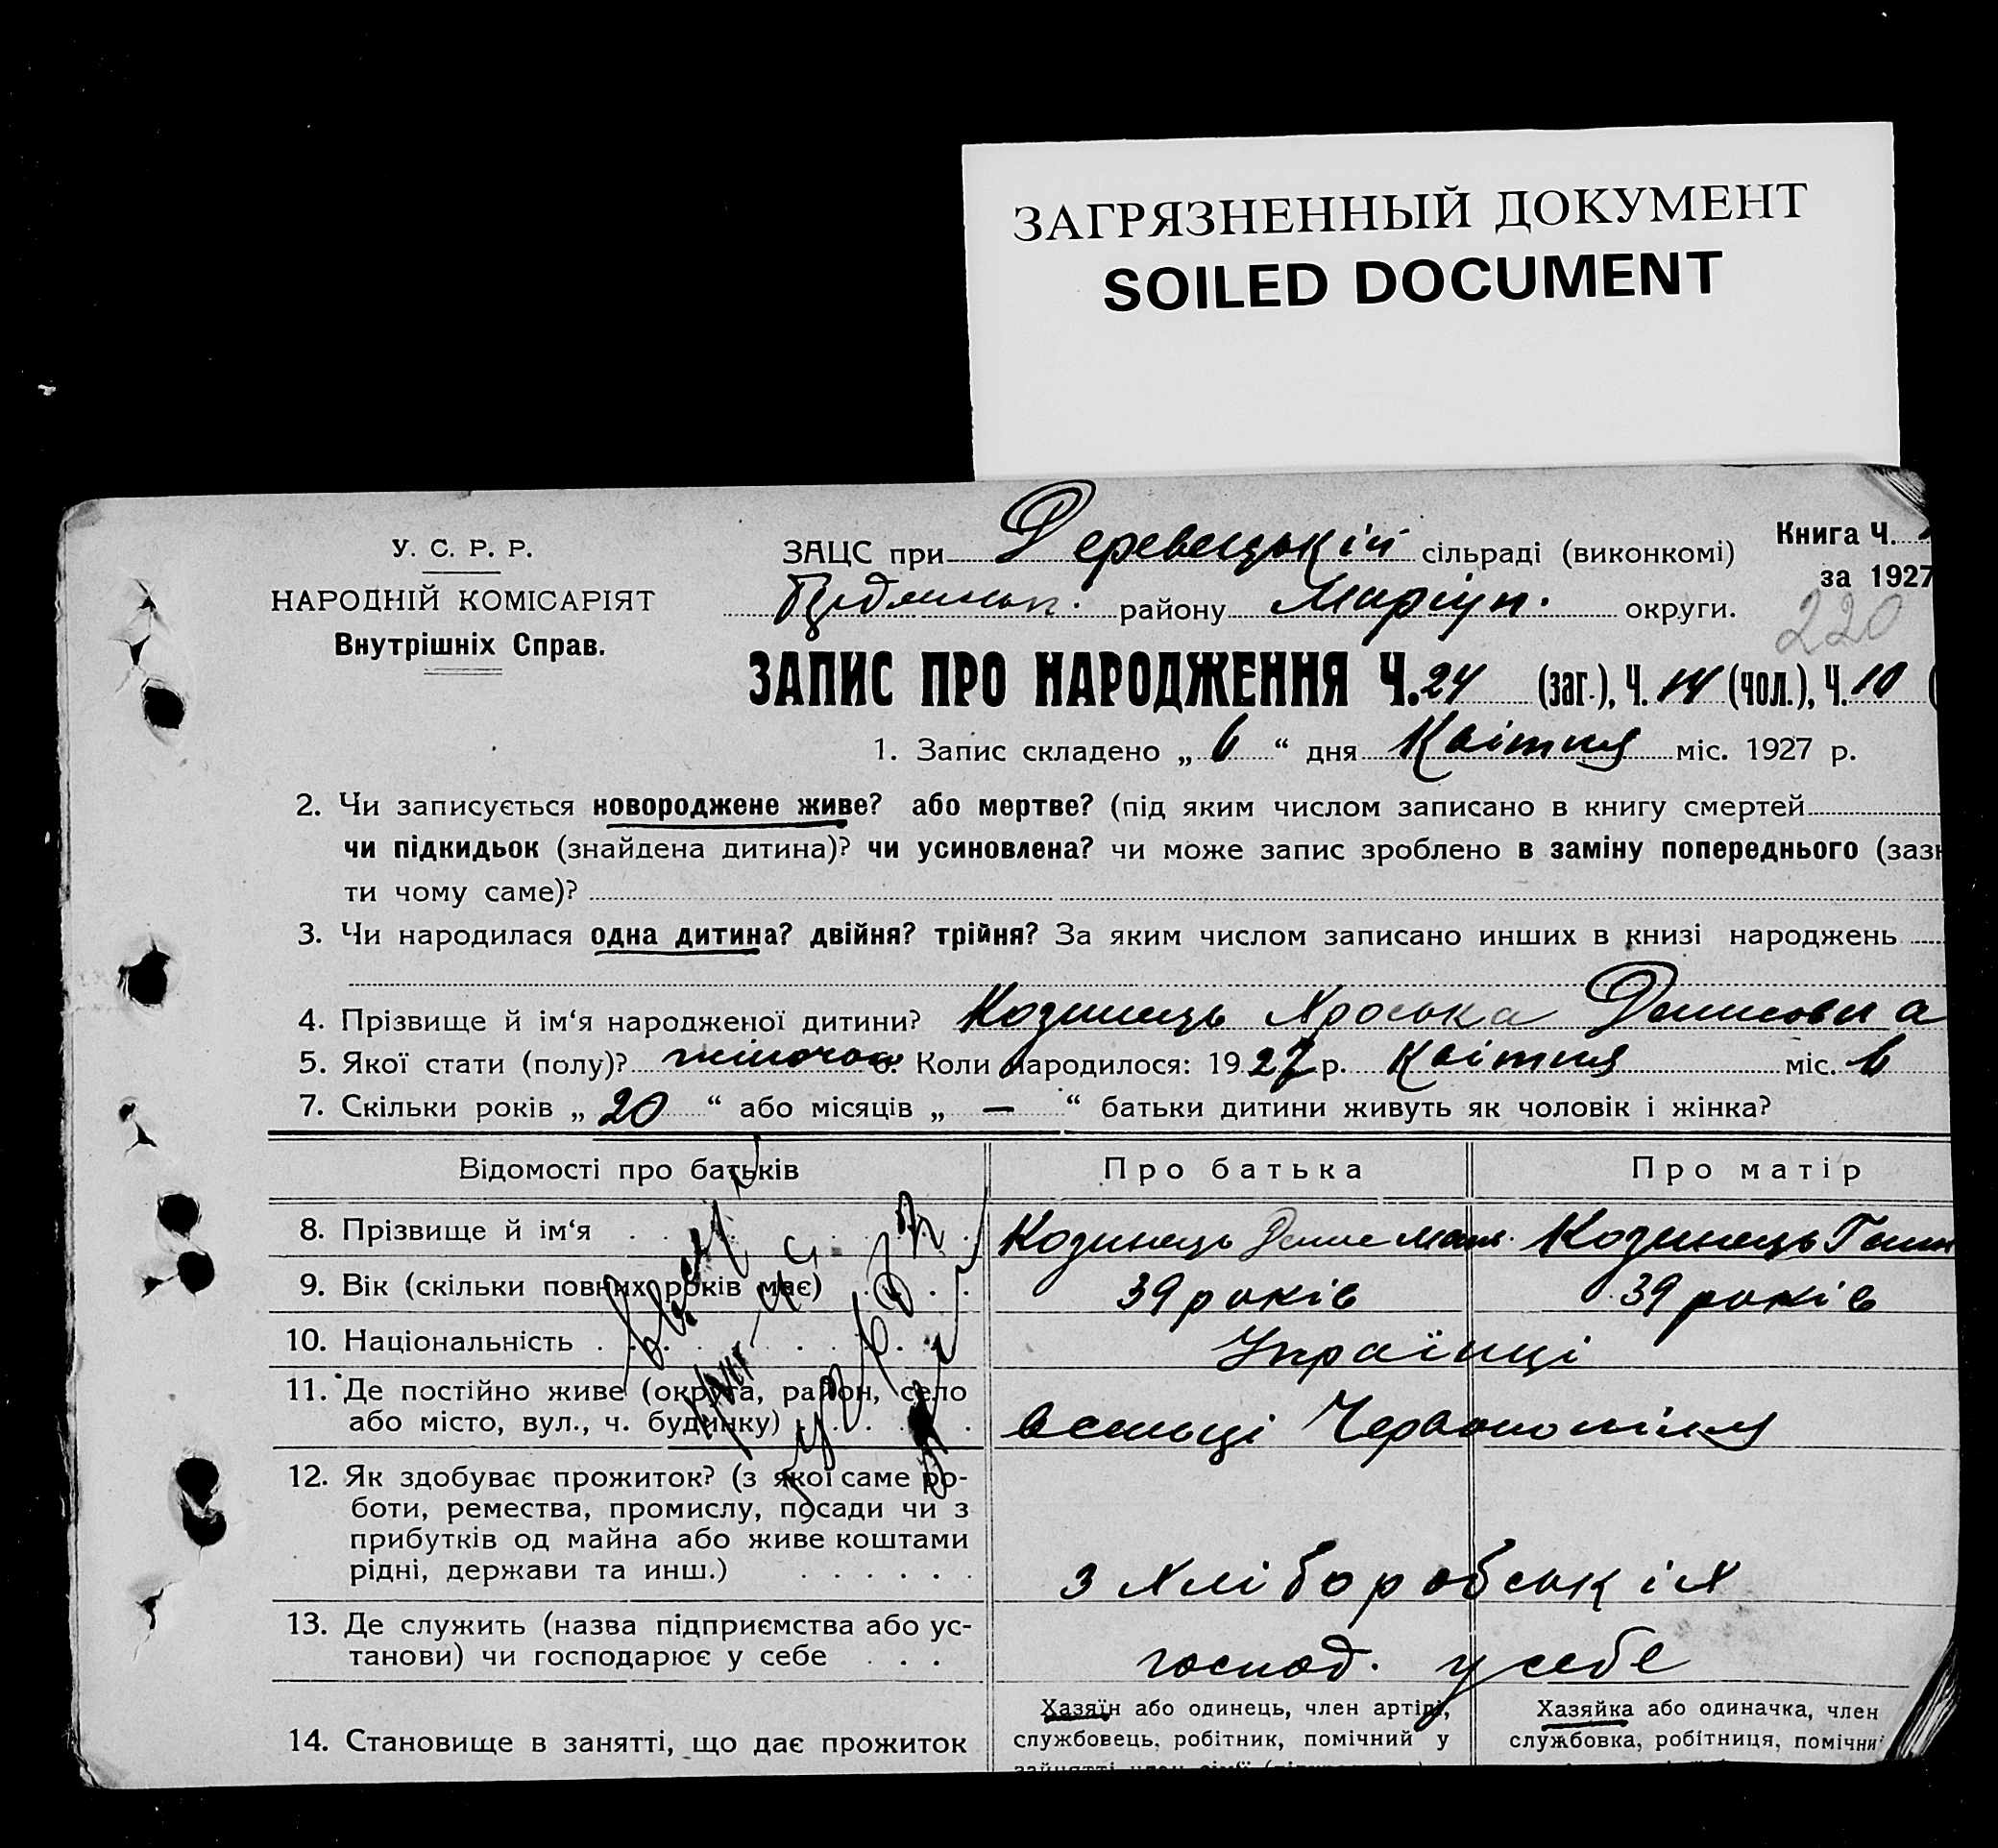 ЗАГРЯЗНЕННЫЙ ДОКУМЕНТ
SOILED DOCUMENT
У. С. Р. Р.
НАРОДНІЙ КОМІСАРІЯТ
Внутрішніх Справ.
ЗАЦС при Деревецькій сільраді (виконкомі)
Книга Ч.
за 1927
району Маріуп. округи.
220
ЗАПИС ПРО НАРОДЖЕННЯ Ч. 24 (заг.), Ч. 14 (чол.), Ч. 10 (
1. Запис складено „ 6 “ дня Квітня міс. 1927 р.
2. Чи записується новороджене живе? або мертве? (під яким числом записано в книгу смертей
чи підкидьок (знайдена дитина)? чи усиновлена? чи може запис зроблено в заміну попереднього (зазн
ти чому саме)?
3. Чи народилася одна дитина? двійня? трійня? За яким числом записано инших в книзі народжень
4. Прізвище й ім‘я народженої дитини? Козинець Хроська Денисовна
5. Якої стати (полу)? жіночої 6. Коли народилося: 1927 р. Квітня міс. 6
7. Скільки років „ 20 “ або місяців „ — “ батьки дитини живуть як чоловік і жінка?
Відомості про батьків
Про батька
Про матір
8. Прізвище й ім‘я . . . Козинець Денис Козинець
9. Вік (скільки повних років має) . . . 39 років 39 років
10. Національність . . . Українці
11. Де постійно живе (округа, район, село
або місто, вул., ч. будинку) . . . в селищі
12. Як здобуває прожиток? (з якої саме ро-
боти, ремества, промислу, посади чи з
прибутків од майна або живе коштами
рідні, держави та инш.) . . . . . . з хліборобських
13. Де служить (назва підприємства або ус-
танови) чи господарює у себе . . . господ. у себе
Хазяїн або одинець, член артілі,
службовець, робітник, помічний у
Хазяйка або одиначка, член
службовка, робітниця, помічни
14. Становище в занятті, що дає прожиток